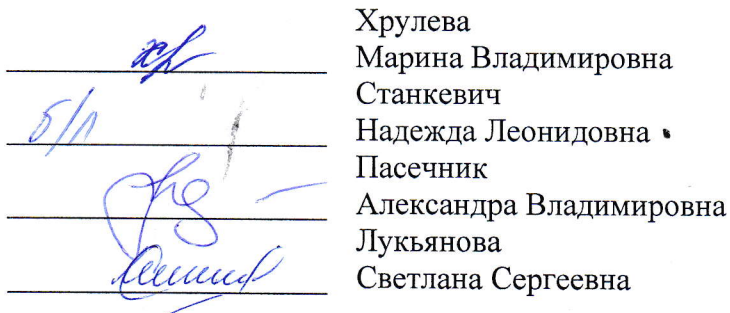 Хрулева
Марина Владимировна
Станкевич
б/л
Надежда Леонидовна
Пасечник
Александра Владимировна
Лукьянова
Светлана Сергеевна